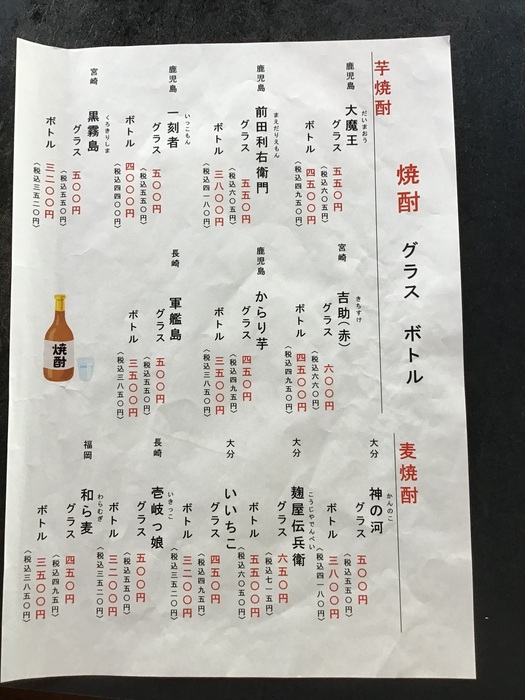 焼酎　グラス　ボトル
芋焼酎
鹿児島
大魔王
だいまおう
グラス　五五〇円
（税込六〇五円）
ボトル　四五〇〇円
（税込四九五〇円）
鹿児島
前田利右衛門
まえだりえもん
グラス　五五〇円
（税込六〇五円）
ボトル　三八〇〇円
（税込四一八〇円）
鹿児島
一刻者
いっこもん
グラス　五〇〇円
（税込五五〇円）
ボトル　四〇〇〇円
（税込四四〇〇円）
宮崎
黒霧島
くろきりしま
グラス　五〇〇円
（税込五五〇円）
ボトル　三二〇〇円
（税込三五二〇円）
宮崎
吉助（赤）
きちすけ
グラス　六〇〇円
（税込六六〇円）
ボトル　四五〇〇円
（税込四九五〇円）
鹿児島
からり芋
グラス　四五〇円
（税込四九五円）
ボトル　三五〇〇円
（税込三八五〇円）
長崎
軍艦島
グラス　五〇〇円
（税込五五〇円）
ボトル　三五〇〇円
（税込三八五〇円）
焼酎
麦焼酎
大分
神の河
かんのこ
グラス　五〇〇円
（税込五五〇円）
ボトル　三八〇〇円
（税込四一八〇円）
大分
麹屋伝兵衛
こうじやでんべい
グラス　六五〇円
（税込七一五円）
ボトル　五五〇〇円
（税込六〇五〇円）
大分
いいちこ
グラス　四五〇円
（税込四九五円）
ボトル　三二〇〇円
（税込三五二〇円）
長崎
壱岐っ娘
いきっこ
グラス　五〇〇円
（税込五五〇円）
ボトル　三二〇〇円
（税込三五二〇円）
福岡
和ら麦
わらむぎ
グラス　四五〇円
（税込四九五円）
ボトル　三五〇〇円
（税込三八五〇円）